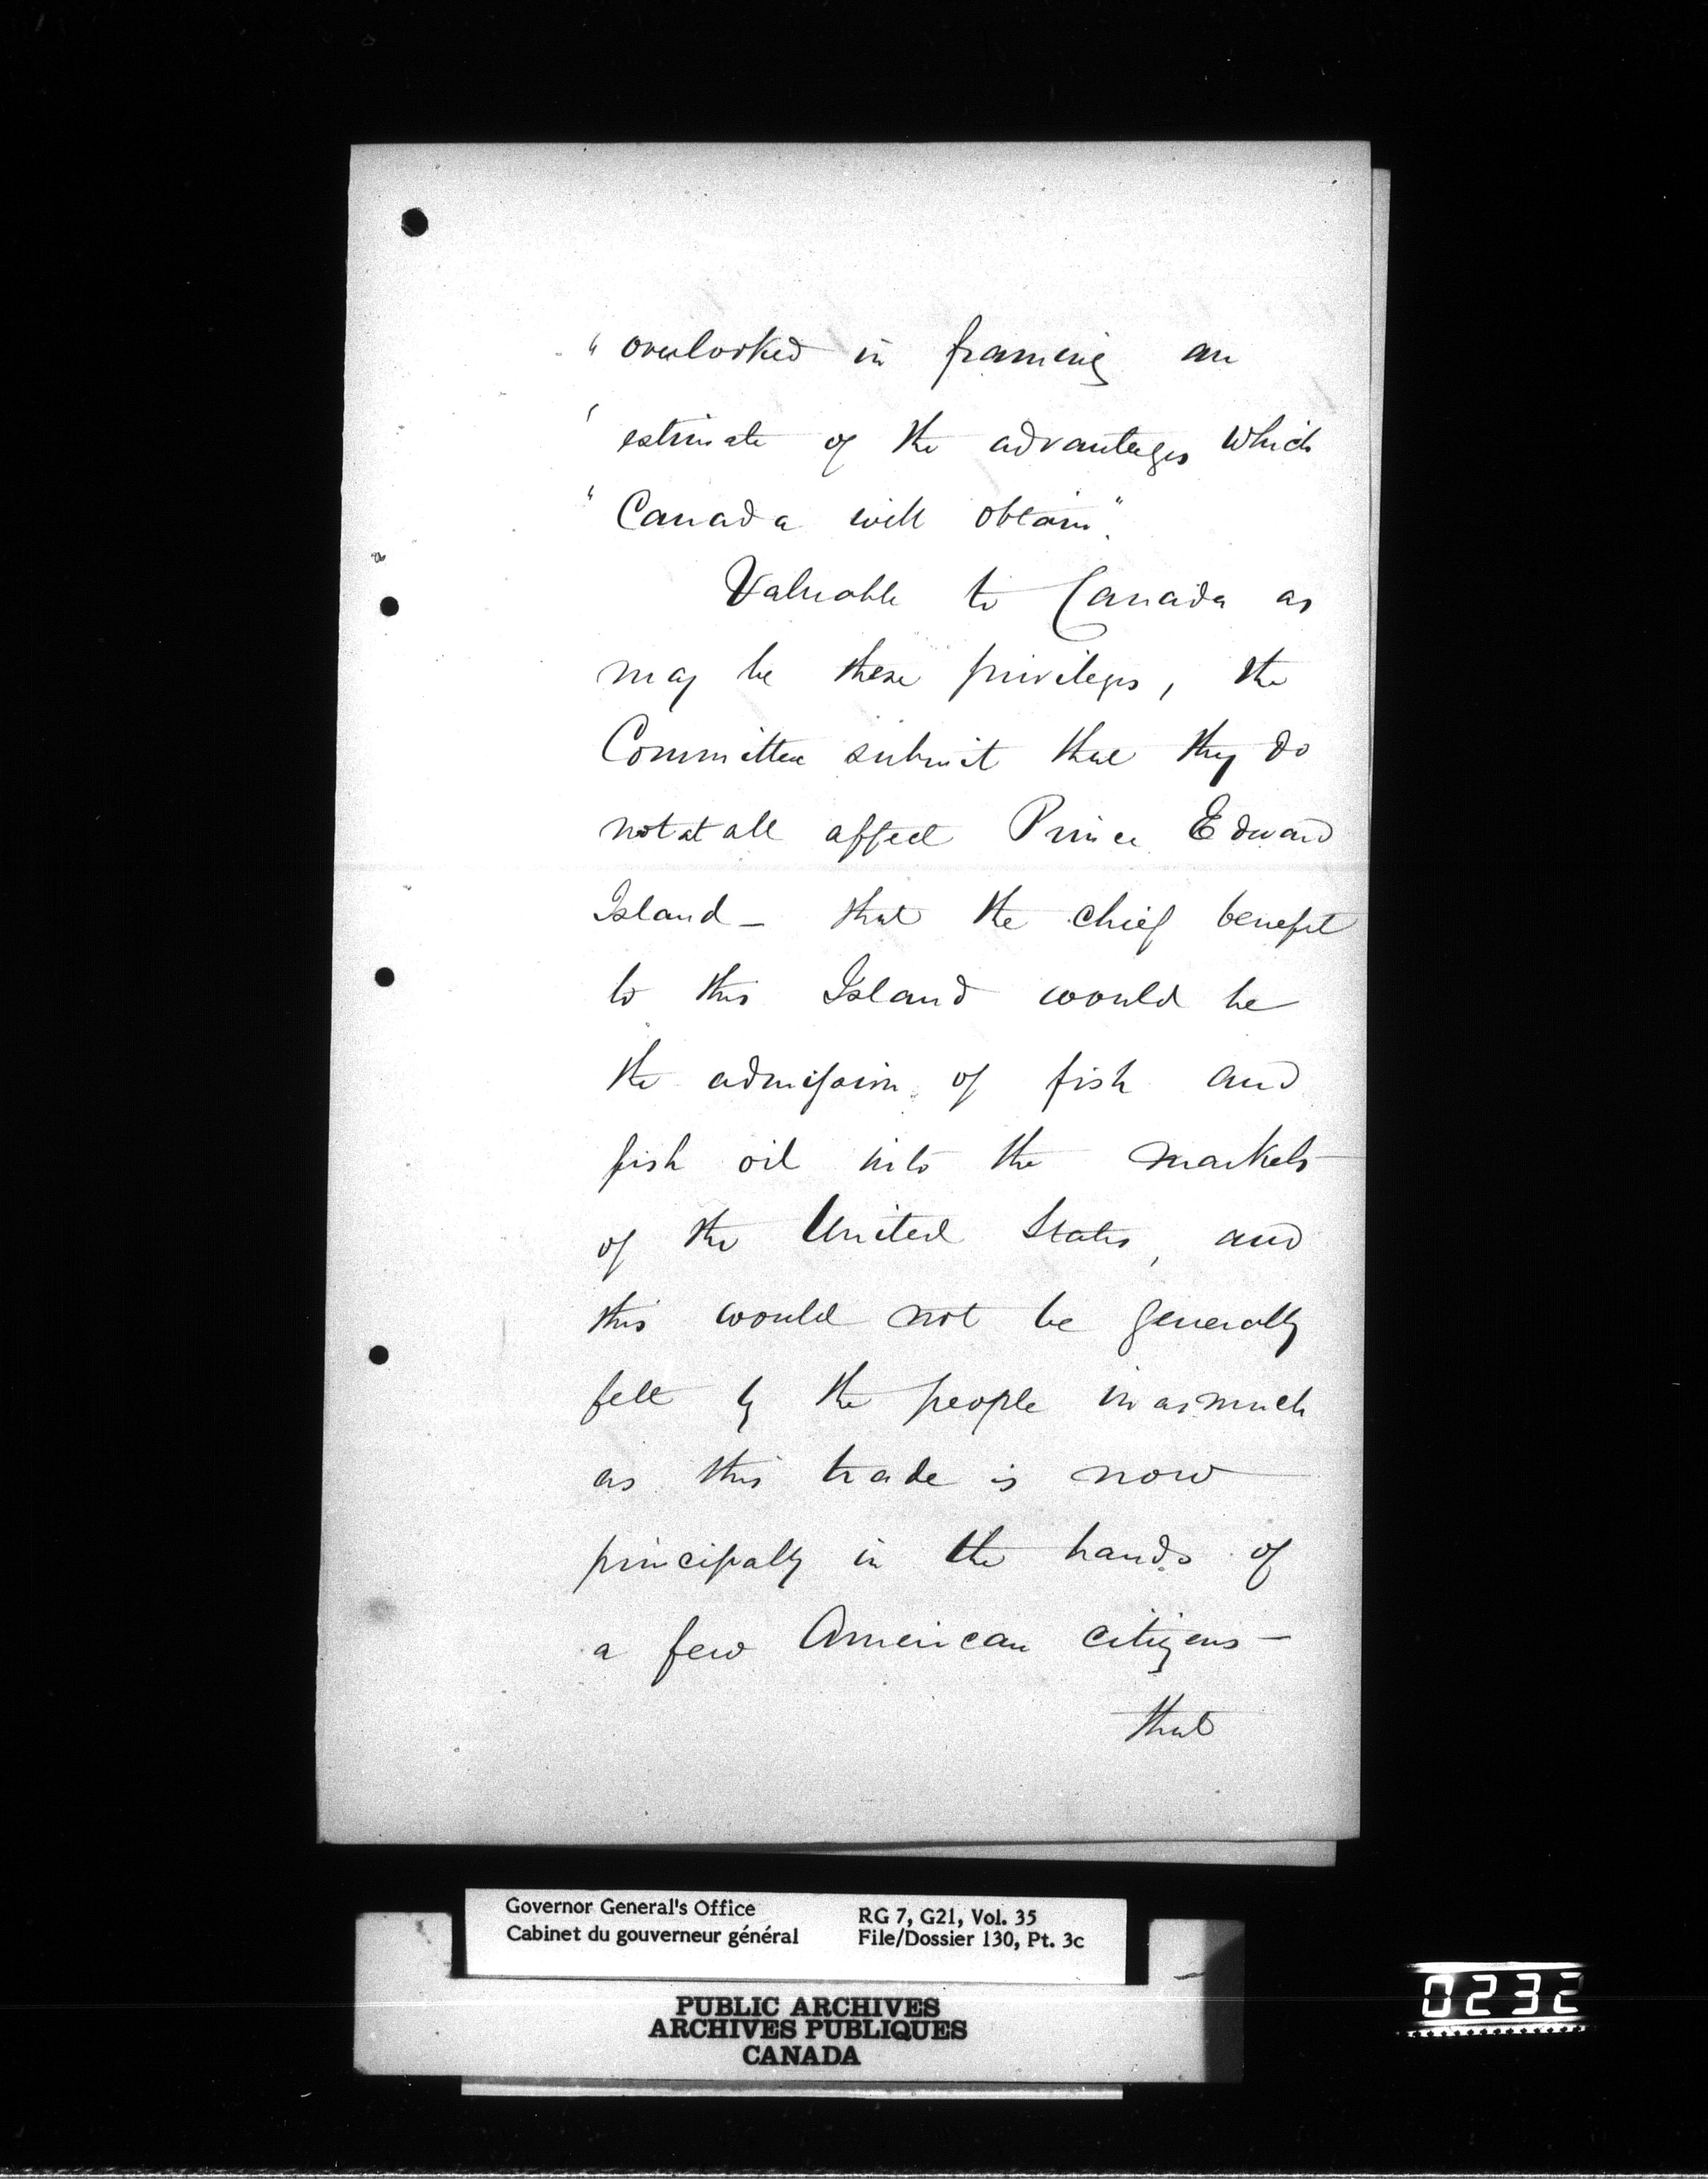 " overlooked in framing an
' estimate of the advantages which
" Canada will obtain".
Valuable to Canada as
may be these privileges, the
Committee submit that they do
not at all affect Prince Edward
Island – that the chief benefit
to this Island would be
the admission of fish and
fish oil into the markets
of the United States, and
this would not be generally
felt by the people inasmuch
as this trade is now
principally in the hands of
a few American citizens –
that
Governor General's Office
Cabinet du gouverneur général
RG 7, G21, Vol. 35
File/Dossier 130, Pt. 3c
PUBLIC ARCHIVES
ARCHIVES PUBLIQUES
CANADA
0232